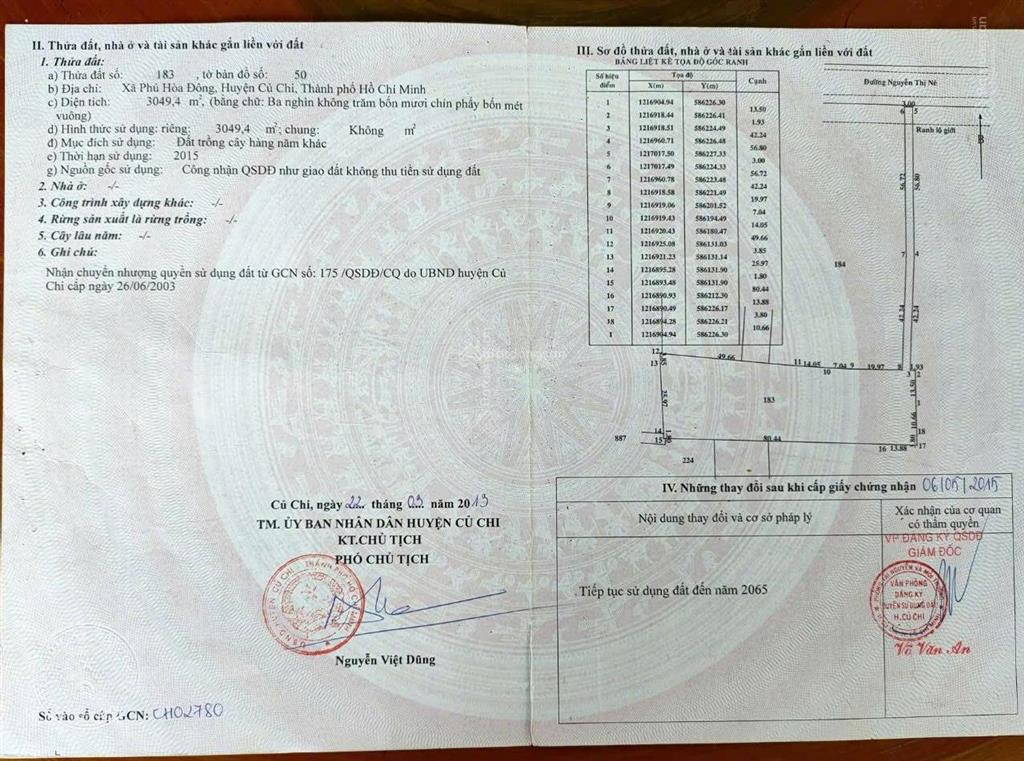 II. Thửa đất, nhà ở và tài sản khác gắn liền với đất
1. Thửa đất:
a) Thửa đất số: 183 , tờ bản đồ số: 50
b) Địa chỉ: Xã Phú Hòa Đông, Huyện Củ Chi, Thành phố Hồ Chí Minh
c) Diện tích: 3049,4 m², (bằng chữ: Ba nghìn không trăm bốn mươi chín phẩy bốn mét
vuông)
d) Hình thức sử dụng: riêng: 3049,4 m²; chung: Không m²
đ) Mục đích sử dụng: Đất trồng cây hàng năm khác
e) Thời hạn sử dụng: 2015
g) Nguồn gốc sử dụng: Công nhận QSDĐ như giao đất không thu tiền sử dụng đất
2. Nhà ở: -/-
3. Công trình xây dựng khác: -/-
4. Rừng sản xuất là rừng trồng: -/-
5. Cây lâu năm: -/-
6. Ghi chú:
Nhận chuyển nhượng quyền sử dụng đất từ GCN số: 175 /QSDĐ/CQ do UBND huyện Củ
Chi cấp ngày 26/06/2003
Củ Chi, ngày 22 tháng 03 năm 2013
TM. ỦY BAN NHÂN DÂN HUYỆN CỦ CHI
KT.CHỦ TỊCH
PHÓ CHỦ TỊCH
Nguyễn Việt Dũng
Số vào sổ cấp GCN: CH02780
III. Sơ đồ thửa đất, nhà ở và tài sản khác gắn liền với đất
BẢNG LIỆT KÊ TỌA ĐỘ GÓC RANH
Số hiệu điểm Tọa độ Cạnh
X(m) Y(m)
1 1216904.94 586226.30
13.50
2 1216918.44 586226.41
1.93
3 1216918.51 586224.49
42.24
4 1216960.71 586226.48
56.80
5 1217017.50 586227.33
3.00
6 1217017.49 586224.33
56.72
7 1216960.78 586223.48
42.24
8 1216918.58 586221.49
19.97
9 1216919.06 586201.52
7.04
10 1216919.43 586194.49
14.05
11 1216920.43 586180.47
49.66
12 1216925.08 586131.03
3.85
13 1216921.23 586131.14
25.97
14 1216895.28 586131.90
1.80
15 1216893.48 586131.90
80.44
16 1216890.93 586212.30
13.88
17 1216890.49 586226.17
3.80
18 1216894.28 586226.21
10.66
1 1216904.94 586226.30
Đường Nguyễn Thị Nê
3.00
6 5
Ranh lộ giới
B
56.72 56.80
184
7 4
42.24 42.24
12 49.66 11 14.05 7.04 9 19.97 8 1.93
10 3 2
13 3.85
13.50
25.97
183
1
10.66
14 18
887 15 1.80 80.44 3.80
16 13.88 17
224
IV. Những thay đổi sau khi cấp giấy chứng nhận 06/05/2015
Nội dung thay đổi và cơ sở pháp lý
Xác nhận của cơ quan
có thẩm quyền
VP ĐĂNG KÝ QSDĐ
GIÁM ĐỐC
Tiếp tục sử dụng đất đến năm 2065
VĂN PHÒNG
ĐĂNG KÝ
QUYỀN SỬ DỤNG ĐẤT
H.CỦ CHI
Võ Văn An